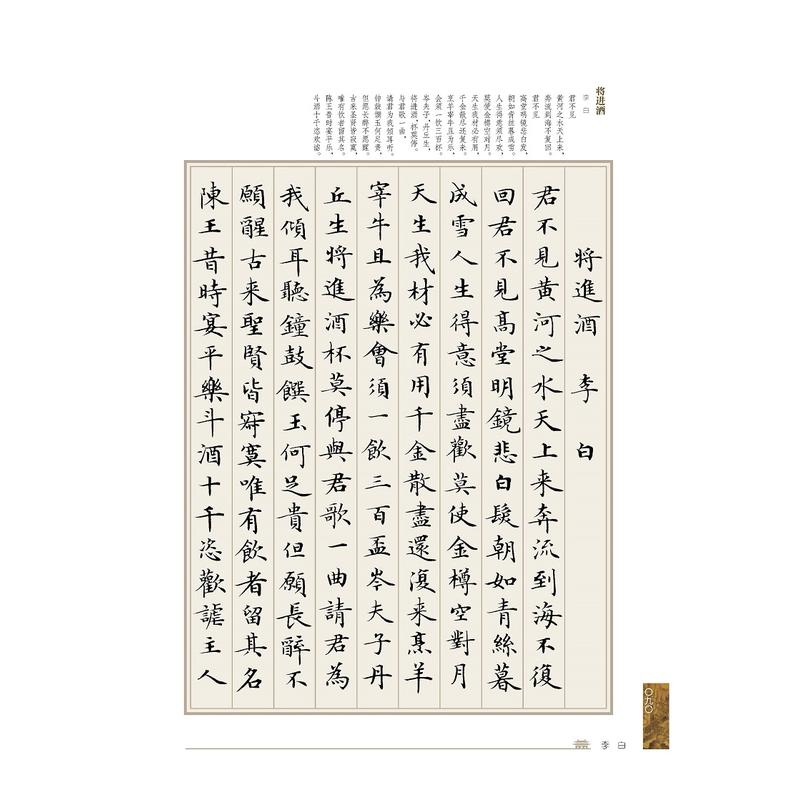 将进酒
李 白
君不见
黄河之水天上来，
奔流到海不复回。
君不见
高堂明镜悲白发，
朝如青丝暮成雪。
人生得意须尽欢，
莫使金樽空对月。
天生我材必有用，
千金散尽还复来。
烹羊宰牛且为乐，
会须一饮三百杯。
岑夫子，丹丘生，
将进酒，杯莫停。
与君歌一曲，
请君为我倾耳听。
钟鼓馔玉何足贵，
但愿长醉不愿醒。
古来圣贤皆寂寞，
唯有饮者留其名。
陈王昔时宴平乐，
斗酒十千恣欢谑。
將進酒 李白
君不見黃河之水天上来奔流到海不復
回君不見高堂明鏡悲白髮朝如青絲暮
成雪人生得意須盡歡莫使金樽空對月
天生我材必有用千金散盡還復来烹羊
宰牛且為樂會須一飲三百盃岑夫子丹
丘生將進酒杯莫停與君歌一曲請君為
我傾耳聽鐘鼓饌玉何足貴但願長醉不
願醒古来聖賢皆寂寞唯有飲者留其名
陳王昔時宴平樂斗酒十千恣歡謔主人
〇九〇
李 白